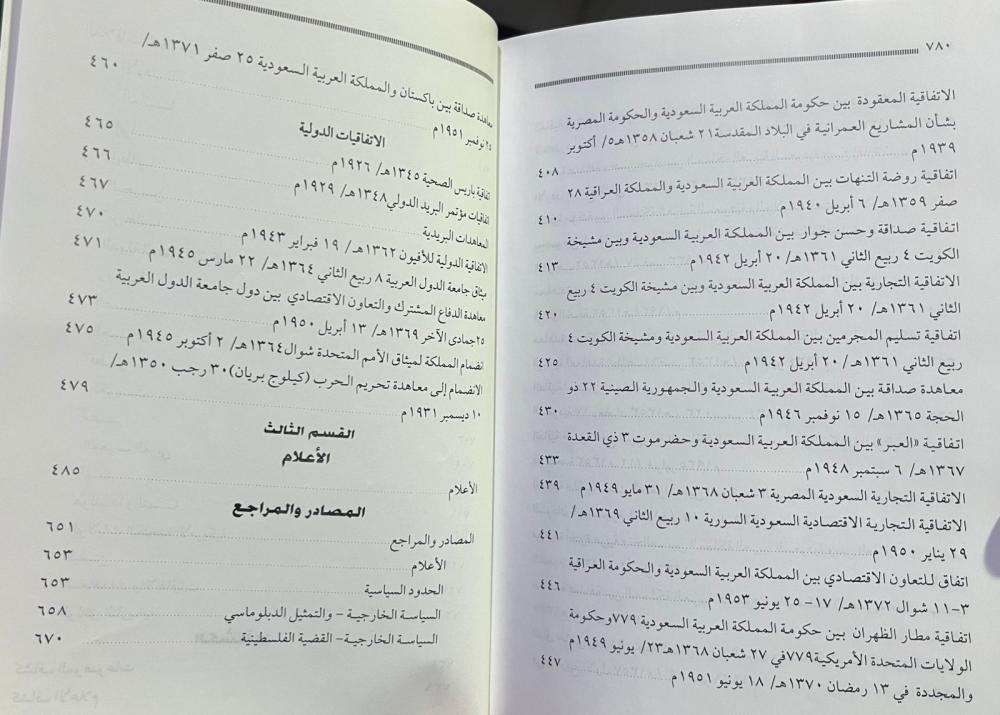 ٧٨٠
الاتفاقية المعقودة بين حكومة المملكة العربية السعودية والحكومة المصرية
بشأن المشاريع العمرانية في البلاد المقدسة٢١ شعبان ١٣٥٨هـ/٥ أكتوبر
١٩٣٩م ٤٠٨
اتفاقية روضة التنهات بين المملكة العربية السعودية والمملكة العراقية ٢٨
صفر ١٣٥٩هـ/ ٦ أبريل ١٩٤٠م ٤١٠
اتفاقية صداقة وحسن جوار بين المملكة العربية السعودية وبين مشيخة
الكويت ٤ ربيع الثاني ١٣٦١هـ/ ٢٠ أبريل ١٩٤٢م ٤١٣
الاتفاقية التجارية بين المملكة العربية السعودية وبين مشيخة الكويت ٤ ربيع
الثاني ١٣٦١هـ/ ٢٠ أبريل ١٩٤٢م ٤٢٠
اتفاقية تسليم المجرمين بين المملكة العربية السعودية ومشيخة الكويت ٤
ربيع الثاني ١٣٦١هـ/ ٢٠ أبريل ١٩٤٢م ٤٢٥
معاهدة صداقة بين المملكة العربية السعودية والجمهورية الصينية ٢٢ ذو
الحجة ١٣٦٥هـ/ ١٥ نوفمبر ١٩٤٦م ٤٣٠
اتفاقية «العبر» بين المملكة العربية السعودية وحضرموت ٣ ذي القعدة
١٣٦٧هـ/ ٦ سبتمبر ١٩٤٨م ٤٣٣
الاتفاقية التجارية السعودية المصرية ٣ شعبان ١٣٦٨هـ/ ٣١ مايو ١٩٤٩م ٤٣٩
الاتفاقية التجارية الاقتصادية السعودية السورية ١٠ ربيع الثاني ١٣٦٩هـ/
٢٩ يناير ١٩٥٠م ٤٤١
اتفاق للتعاون الاقتصادي بين المملكة العربية السعودية والحكومة العراقية
٣-١١ شوال ١٣٧٢هـ/ ١٧- ٢٥ يونيو ١٩٥٣م ٤٤٦
اتفاقية مطار الظهران بين حكومة المملكة العربية السعودية ٧٧٩وحكومة
الولايات المتحدة الأمريكية٧٧٩في ٢٧ شعبان ١٣٦٨هـ/٢٣ يونيو ١٩٤٩م
والمجددة في ١٣ رمضان ١٣٧٠هـ/ ١٨ يونيو ١٩٥١م ٤٤٧
معاهدة صداقة بين باكستان والمملكة العربية السعودية ٢٥ صفر ١٣٧١هـ/
٢٥ نوفمبر ١٩٥١م ٤٦٠
الاتفاقيات الدولية
تفاقية باريس الصحية ١٣٤٥هـ/ ١٩٢٦م ٤٦٥
اتفاقيات مؤتمر البريد الدولي١٣٤٨هـ/ ١٩٢٩م ٤٦٦
المعاهدات البريدية ٤٦٧
الاتفاقية الدولية للأفيون ١٣٦٢هـ/ ١٩ فبراير ١٩٤٣م ٤٧٠
ميثاق جامعة الدول العربية ٨ ربيع الثاني ١٣٦٤هـ/ ٢٢ مارس ١٩٤٥م ٤٧١
معاهدة الدفاع المشترك والتعاون الاقتصادي بين دول جامعة الدول العربية
٢٥جمادى الآخر ١٣٦٩هـ/ ١٣ أبريل ١٩٥٠م ٤٧٣
نضمام المملكة لميثاق الأمم المتحدة شوال١٣٦٤هـ/ ٢ أكتوبر ١٩٤٥م ٤٧٥
الانضمام إلى معاهدة تحريم الحرب (كيلوج بريان)٣٠ رجب ١٣٥٠هـ/
١٠ ديسمبر ١٩٣١م ٤٧٩
القسم الثالث
الأعلام
الأعلام ٤٨٥
المصادر والمراجع
المصادر والمراجع ٦٥١
الأعلام ٦٥٣
الحدود السياسية ٦٥٣
السياسة الخارجية- والتمثيل الدبلوماسي ٦٥٨
السياسة الخارجية- القضية الفلسطينية ٦٧٠